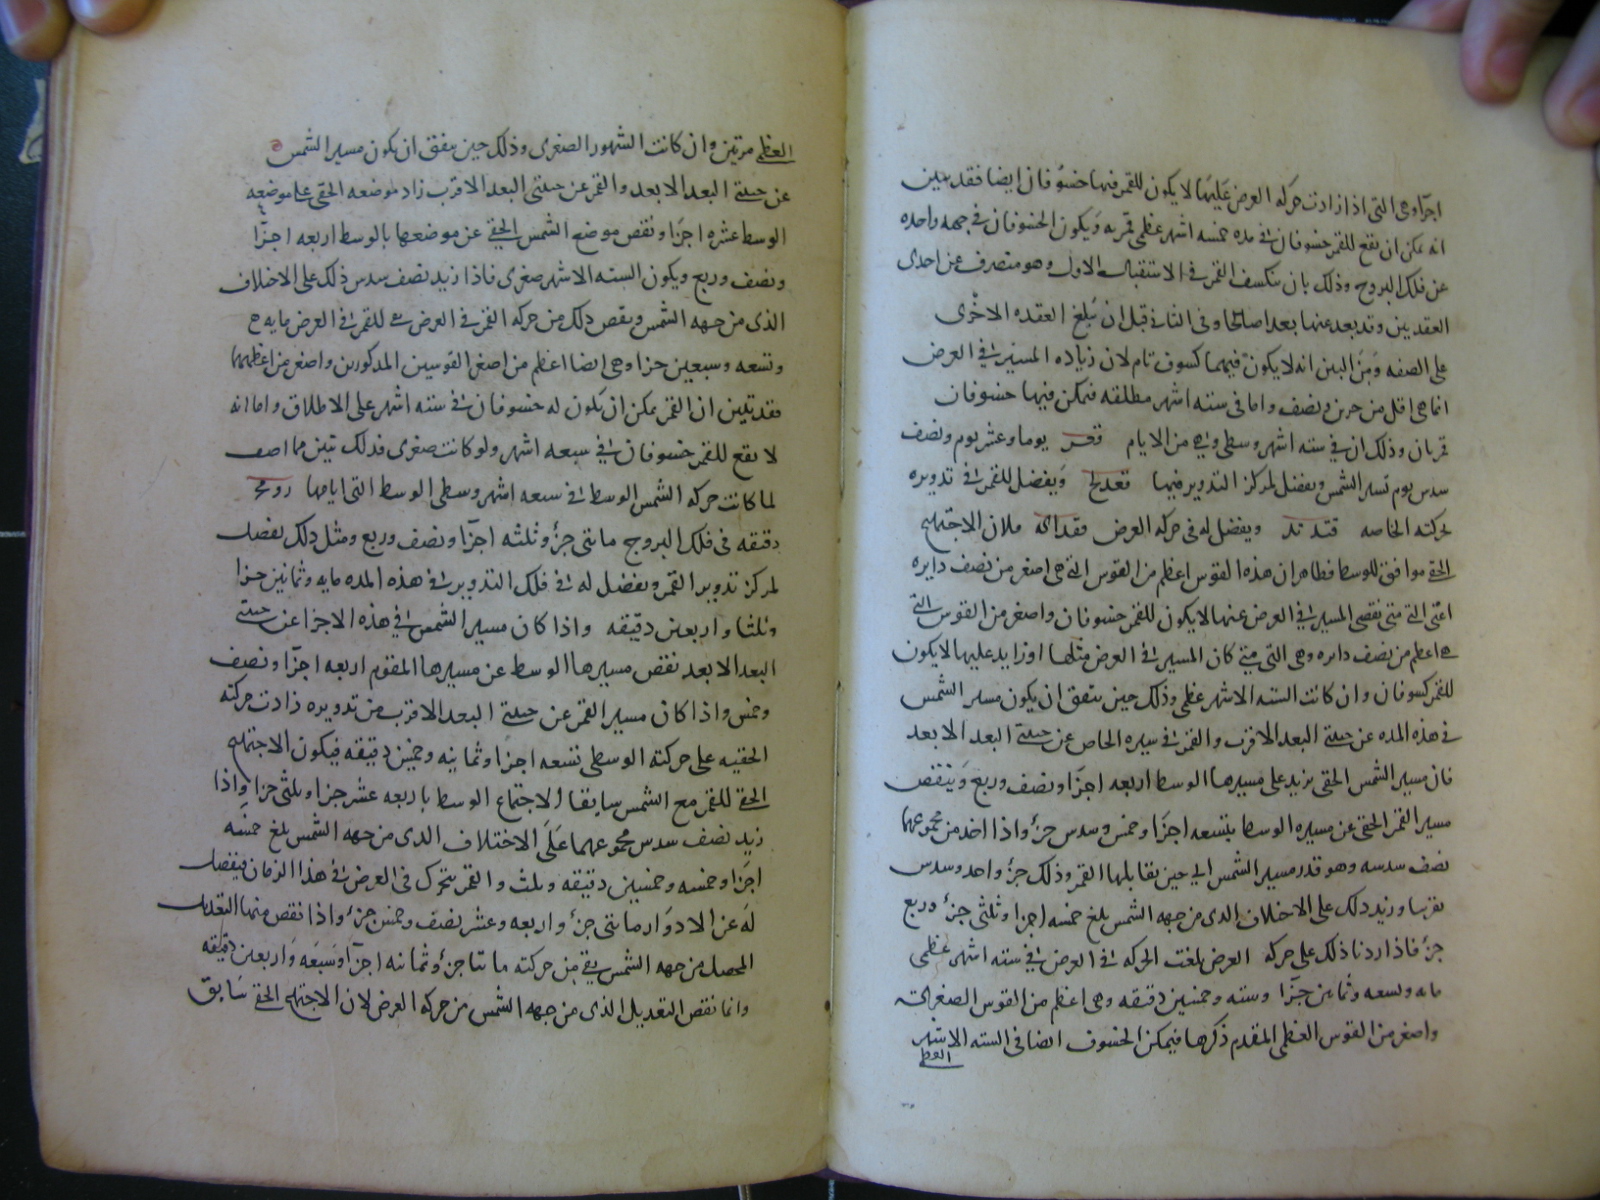 اجزا وهى التى اذا زادت حركه العرض عليها لا يكون للقمر فيها خسوفان ايضا فقد تبين
انه يمكن ان يقع للقمر خسوفان فى مده خمسه اشهر عظمى قمريه ويكون الخسوفان فى جهه واحده
عن فلك البروج وذلك بان ينكسف القمر فى الاستقبال الاول وهو منصرف عن احدى
العقدتين وقد بعد عنها بعدا صالحا وفى الثانى قبل ان يبلغ العقده الاخرى
على الصفه ومن البين انه لا يكون فيهما كسوف تام لان زياده المسير فى العرض
انما هى اقل من جزين ونصف واما فى سته اشهر مطلقه فيمكن فيها خسوفان
قمريان وذلك ان فى سته اشهر وسطى وهى من الايام قعر يوما وعشر يوم ونصف
سدس يوم تسير الشمس ويفضل لمركز التدوير فيها قعد لح ويفضل للقمر فى تدويره
بحركته الخاصه قكد ند ويفضل له فى حركه العرض فلان الاجتماع
الحقى موافق للوسط فظاهر ان هذه القوس اعظم من القوس التى هى اصغر من نصف دايره
اعنى التى متى نقص المسير فى العرض عنها لا يكون للقمر خسوفان واصغر من القوس التى
هى اعظم من نصف دايره وهى التى متى كان المسير فى العرض مثلها او زايد عليها لا يكون
للقمر كسوفان وان كانت السته الاشهر عظمى وذلك حين يتفق ان يكون مسير الشمس
فى هذه المده عن جنبتى البعد الاقرب والقمر فى سيره الخاص عن جنبتى البعد الابعد
فان مسير الشمس الحقى يزيد على مسيرها الوسط اربعه اجزا ونصف وربع وينقص
مسير القمر الحقى عن مسيره الوسط بتسعه اجزا وخمس وسدس جزء واذا اخذ من مجموعهما
نصف سدسه وهو قدر مسير الشمس الى حين يقابلها القمر وذلك جزء واحد وسدس
تقريبا وزيد ذلك على الاختلاف الذى من جهه الشمس بلغ خمسه اجزا وثلثى جزء وربع
جزء فاذا زدنا ذلك على حركه العرض بلغت الحركه فى العرض فى سته اشهر عظمى
مايه وتسعه وثمانين جزا وسته وخمسين دقيقه وهى اعظم من القوس الصغرى
واصغر من القوس العظمى المقدم ذكرها فيمكن الخسوف ايضا فى السته الاشهر
العظمى
العظمى مرتين وان كانت الشهور الصغرى وذلك حين يتفق ان يكون مسير الشمس
عن جنبتى البعد الابعد والقمر عن جنبتى البعد الاقرب زاد موضعه الحقى على موضعه
الوسط عشره اجزا ونقص موضع الشمس الحقى عن موضعها بالوسط اربعه اجزا
ونصف وربع ويكون السته الاشهر صغرى فاذا زيد نصف سدس ذلك على الاختلاف
الذى من جهه الشمس ونقص ذلك من حركه القمر فى العرض بقى للقمر فى العرض مايه
وتسعه وسبعين جزا وهى ايضا اعظم من اصغر القوسين المذكورين واصغر من اعظمهما
فقد تبين ان القمر يمكن ان يكون له خسوفان فى سته اشهر على الاطلاق واما انه
لا يقع للقمر خسوفان فى سبعه اشهر ولو كانت صغرى فذلك تبين مما اصف
لما كانت حركه الشمس الوسط فى سبعه اشهر وسطى الوسط التى ايامها رو مح
دقيقه فى فلك البروج مايتى جزء وثلثه اجزا ونصف وربع ومثل ذلك يفضل
لمركز تدوير القمر ويفضل له فى فلك التدوير فى هذه المده مايه وثمانين جزا
وثلثا واربعين دقيقه واذا كان مسير الشمس فى هذه الاجزا عن جنبتى
البعد الابعد نقص مسيرها الوسط عن مسيرها المقوم اربعه اجزا ونصف
وخمس واذا كان مسير القمر عن جنبتى البعد الاقرب من تدويره زادت حركته
الحقيه على حركته الوسطى تسعه اجزا وثمانيه وخمسين دقيقه فيكون الاجتماع
الحقى للقمر مع الشمس سابقا لاجتماع الوسط باربعه عشر جزا وثلثى جزا واذا
زيد نصف سدس مجموعهما على الاختلاف الذى من جهه الشمس بلغ خمسه
اجزا وخمسه وخمسين دقيقه وثلث والقمر يتحرك فى العرض فى هذا الزمان فيفضل
له عن الادوار مايتى جزء واربعه وعشر ونصف وخمس جزء واذا نقص منها التعديل
المحصل من جهه الشمس بقى من حركته مايتا جزء وثمانيه اجزا وسبعه واربعين دقيقه
وانما نقص التعديل الذى من جهه الشمس من حركه العرض لان الاجتماع الحقى سابق